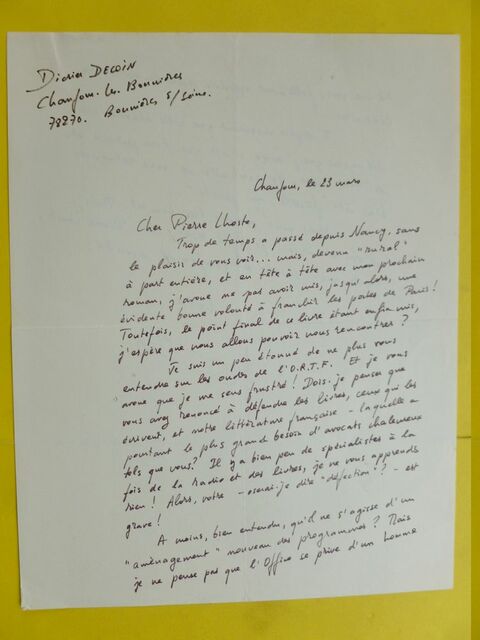 Didier DECOIN
Chaufour-les-Bonnières
78270. Bonnières s/Seine.
Chaufour, le 23 mars
Cher Pierre Lhoste,
Trop de temps a passé depuis Nancy, sans
le plaisir de vous voir... mais, devenu "rural"
à part entière, et en tête à tête avec mon prochain
roman, j'avoue ne pas avoir mis, jusqu'alors, une
évidente bonne volonté à franchir les portes de Paris !
Toutefois, le point final de ce livre étant enfin mis,
j'espère que nous allons pouvoir nous rencontrer ?
Je suis un peu étonné de ne plus vous
entendre sur les ondes de l'O.R.T.F. Et je vous
avoue que je me sens frustré ! Dois-je penser que
vous avez renoncé à défendre les livres, ceux qui les
écrivent, et notre littérature française - laquelle a
pourtant le plus grand besoin d'avocats chaleureux
tels que vous ? Il y a bien peu de spécialistes à la
fois de la radio et des livres, je ne vous apprends
rien ! Alors, votre - oserai-je dire "défection" ? - est
grave !
A moins, bien entendu, qu'il ne s'agisse d'un
"aménagement" nouveau des programmes ? Mais
je ne pense pas que l'Office se prive d'un homme